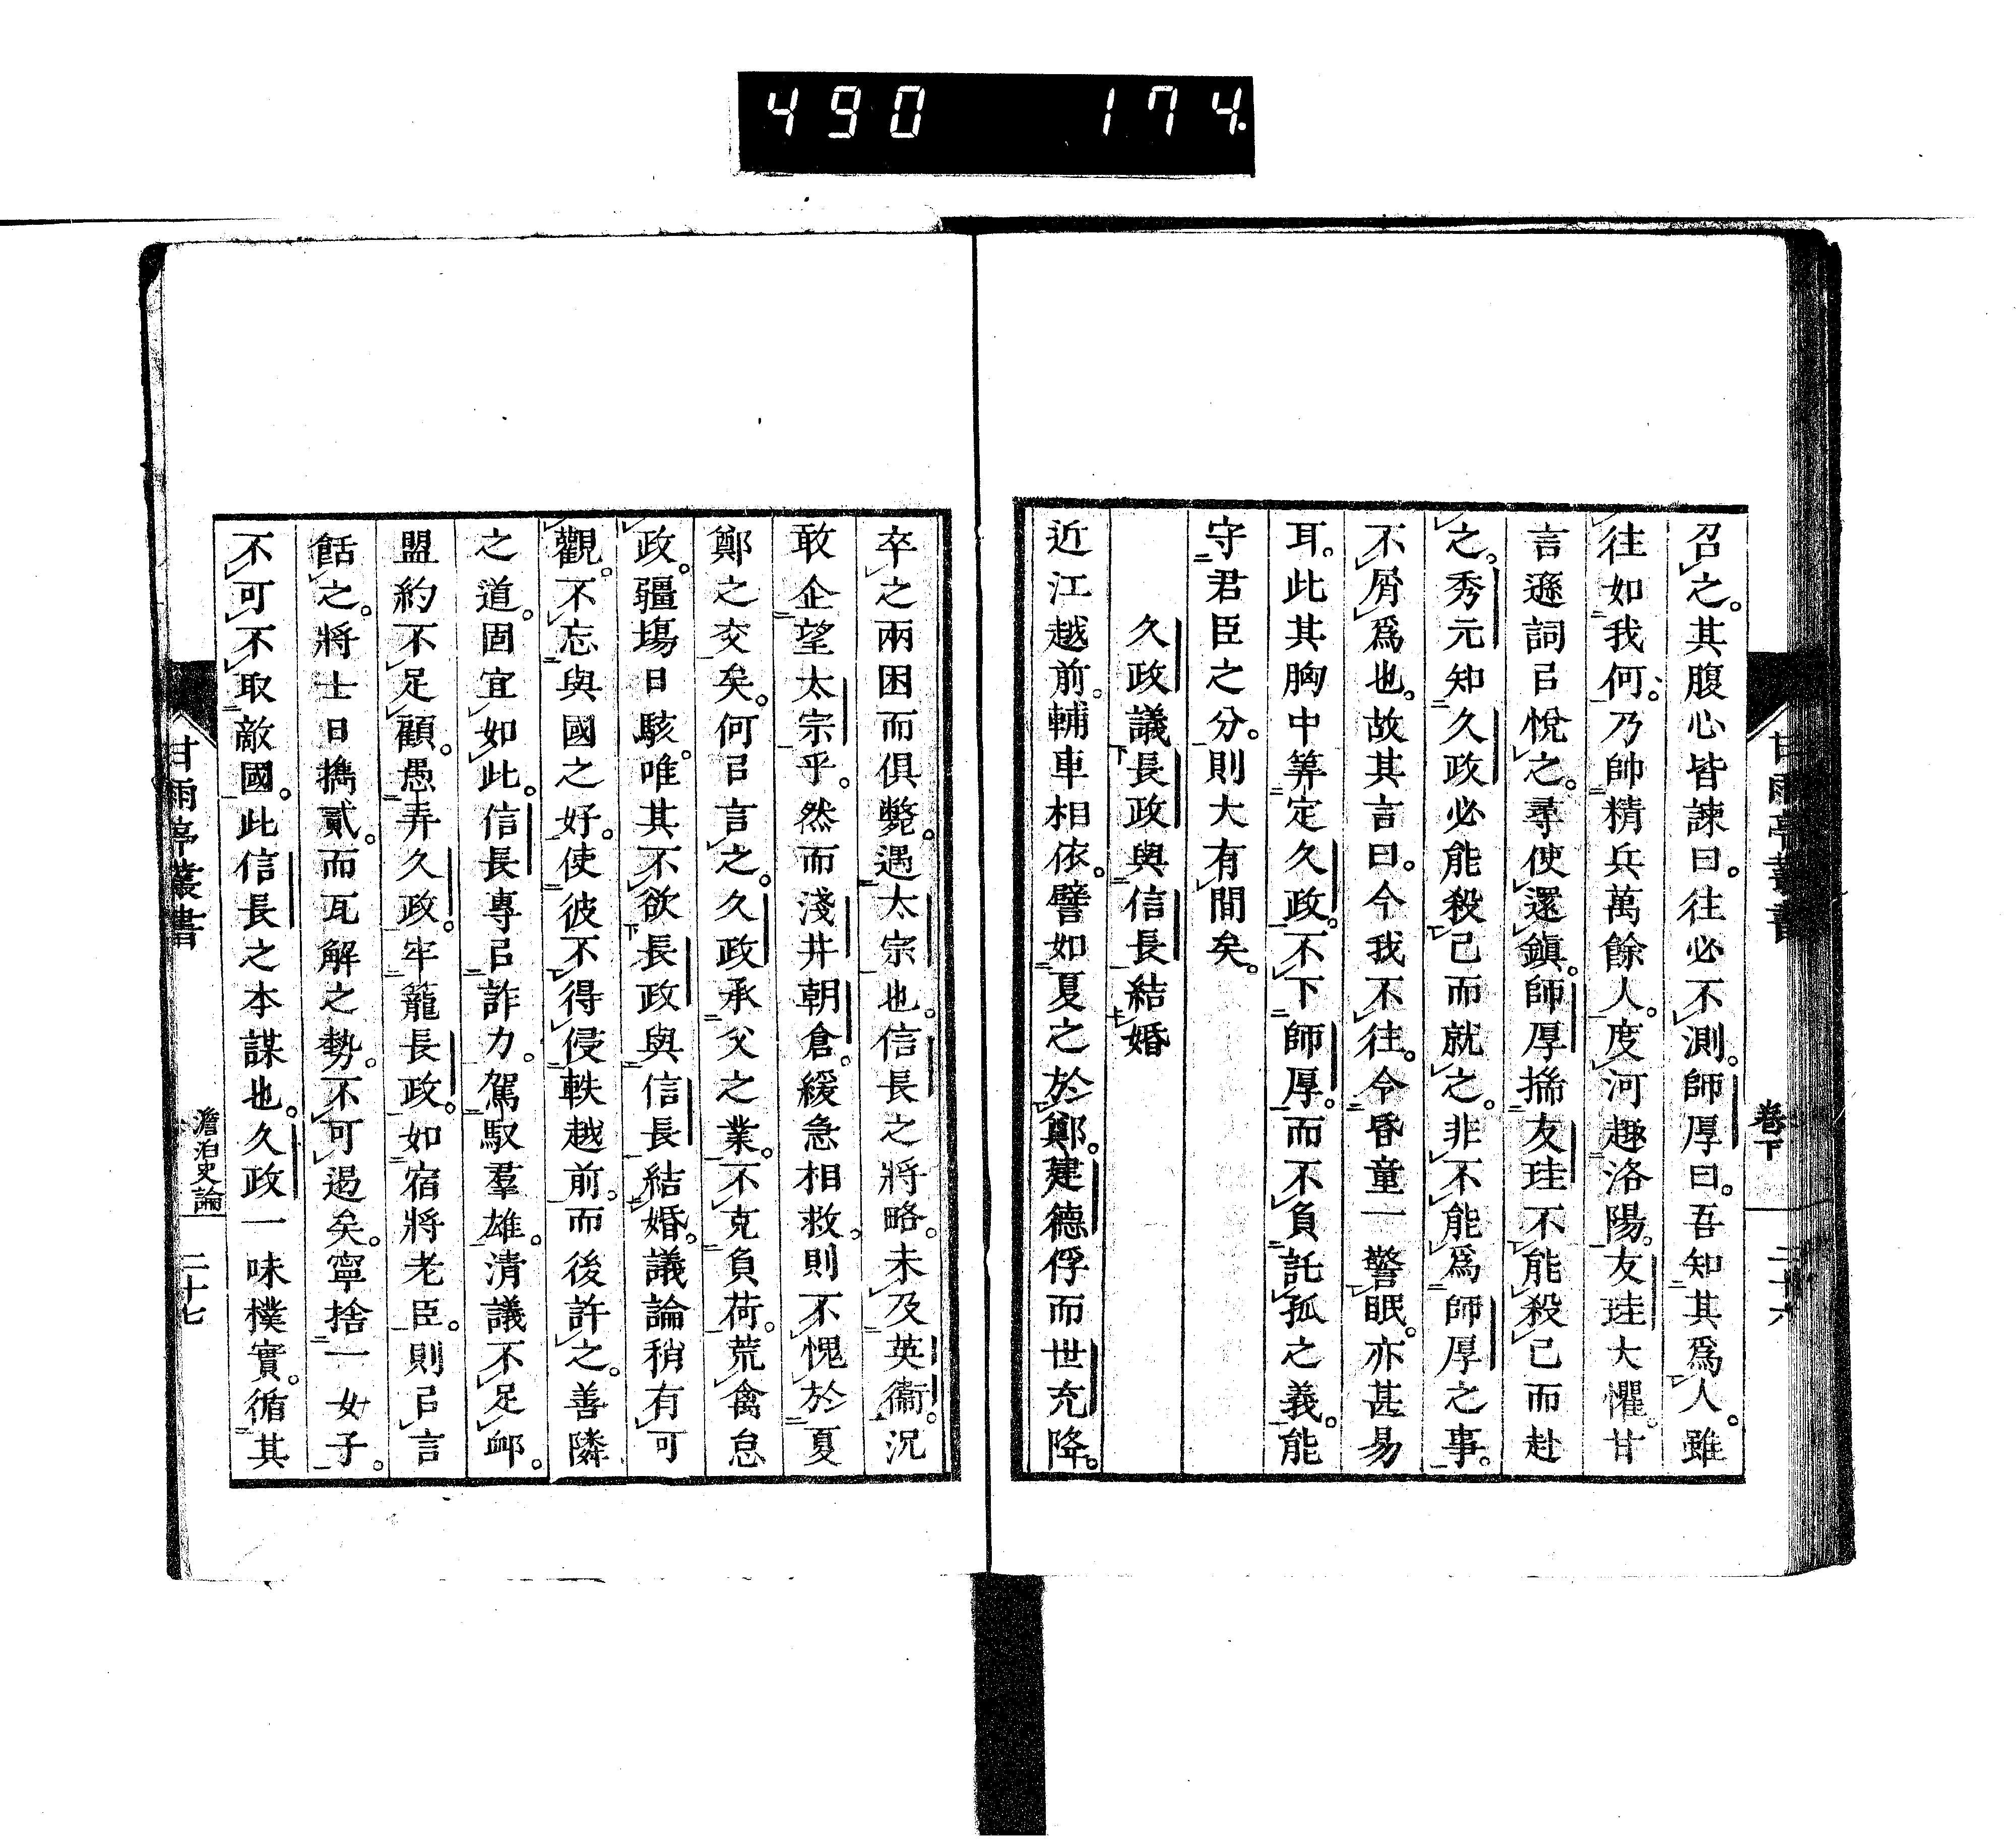 490 174.
召之。其腹心皆諫曰。往必不測。師厚曰。吾知其爲人。雖
往如我何。乃帥精兵萬餘人。度河趣洛陽。友珪大懼。甘
言遜詞㠯悅之。尋使還鎭。師厚揣友珪不能殺己而赴
之。秀元知久政必能殺己而就之。非不能爲師厚之事。
不屑爲也。故其言曰。今我不往。令昏童一警眠。亦甚易
耳。此其胸中筭定久政。不下師厚。而不負託孤之義。能
守君臣之分。則大有間矣。
久政議長政與信長結婚
近江越前。輔車相依。譬如夏之於鄭。建德俘而世充降。
甘雨亭叢書 卷下 二十六
卒之兩困而俱斃。遇太宗也。信長之將略。未及英衞。況
敢企望太宗乎。然而淺井朝倉。緩急相救。則不愧於夏
鄭之交矣。何㠯言之。久政承父之業。不克負荷。荒禽怠
政。疆場日駭。唯其不欲長政與信長結婚。議論稍有可
觀。不忘與國之好。使彼不得侵軼越前。而後許之。善隣
之道。固宜如此。信長專㠯詐力。駕馭羣雄。淸議不足卹。
盟約不足顧。愚弄久政。牢籠長政。如宿將老臣。則㠯言
餂之。將士日攜貳。而瓦解之勢。不可遏矣。寧捨一女子。
不可不取敵國。此信長之本謀也。久政一味樸實。循其
甘雨亭叢書 澹泊史論 二十七